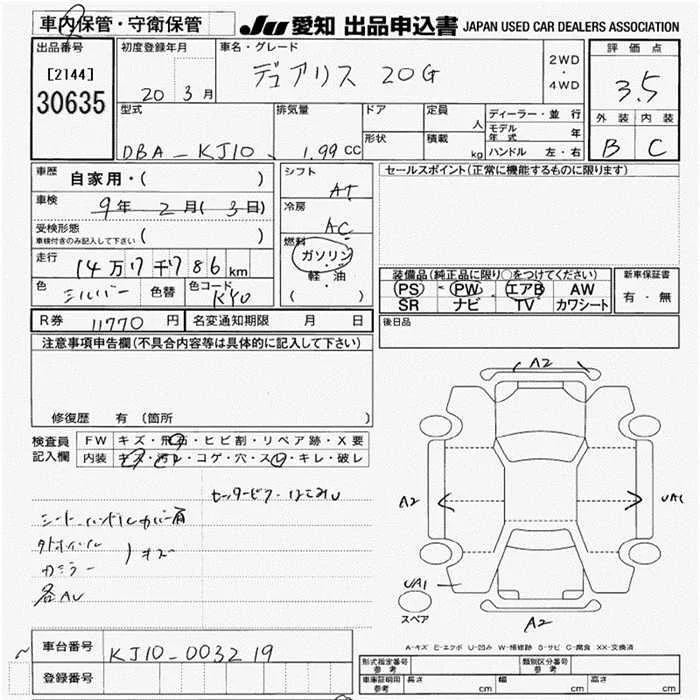 車内保管・守衛保管
JU 愛知 出品申込書 JAPAN USED CAR DEALERS ASSOCIATION
出品番号
[2144]
30635
初度登録年月
20 3月
車名・グレード
デュアリス 20G
2WD
・
4WD
評価点
3.5
外装 内装
B C
型式
DBA-KJ10
排気量
1.99 CC
ドア
形状
定員
人
積載
kg
ディーラー・並行
モデル年式 年
ハンドル 左・右
車歴 自家用・( )
車検 9年 2月( 3日)
受検形態
車検付きのみ記入して下さい ( )
走行 14万7千786km
色 シルバー 色替 色コード KY0
シフト
AT
冷房
AC
燃料
ガソリン
・
軽・油
( )
セールスポイント(正常に機能するものに限ります)
装備品(純正品に限り○をつけてください)
PS ・ PW ・ エアB AW
SR ナビ TV カワシート
新車保証書
有・無
R券 11770 円 名変通知期限 月 日
後日品
注意事項申告欄(不具合内容等は具体的に記入して下さい)
修復歴 有 (箇所 )
検査員
記入欄
FW キズ・飛石・ヒビ割・リペア跡・X要
内装 キズ・汚レ・コゲ・穴・スレ・キレ・破レ
キズ
各AU
A2
A2
UA1
UA1
スペア
A2
A-キズ E-エクボ U-凹み W-補修跡 S-サビ C-腐食 XX-交換済
車台番号 KJ10-003219
登録番号
形式指定番号
参考
類別区分番号
参考
車庫証明用
参考
長さ cm 幅 cm 高さ cm